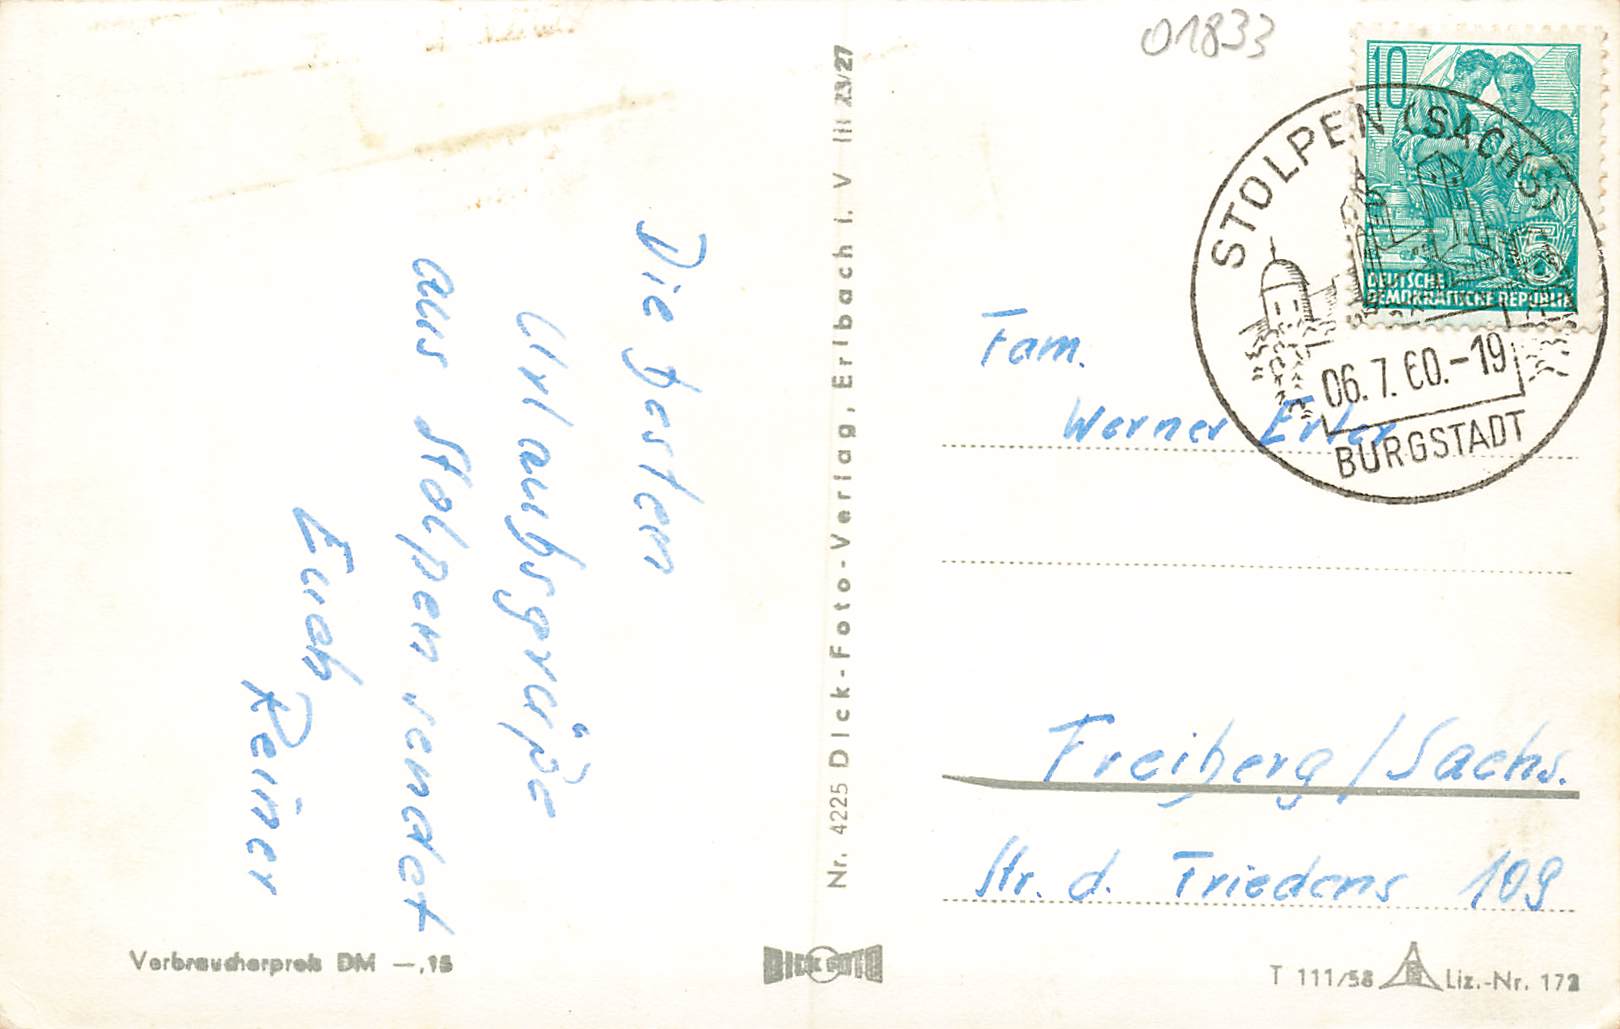 Die besten
Urlaubsgrüße
aus Stolpen sendet
Euch
Reiner
Verbraucherpreis DM —,15
Nr. 4225 Dick-Foto-Verlag, Erlbach i. V III 23/27
DICK FOTO
01833
10
DEUTSCHE
DEMOKRATISCHE REPUBLIK
STOLPEN (SACHS)
06.7.60.-19
BURGSTADT
Fam.
Werner Erler
Freiberg/Sachs.
Str. d. Friedens 109
T 111/58 Liz.-Nr. 172